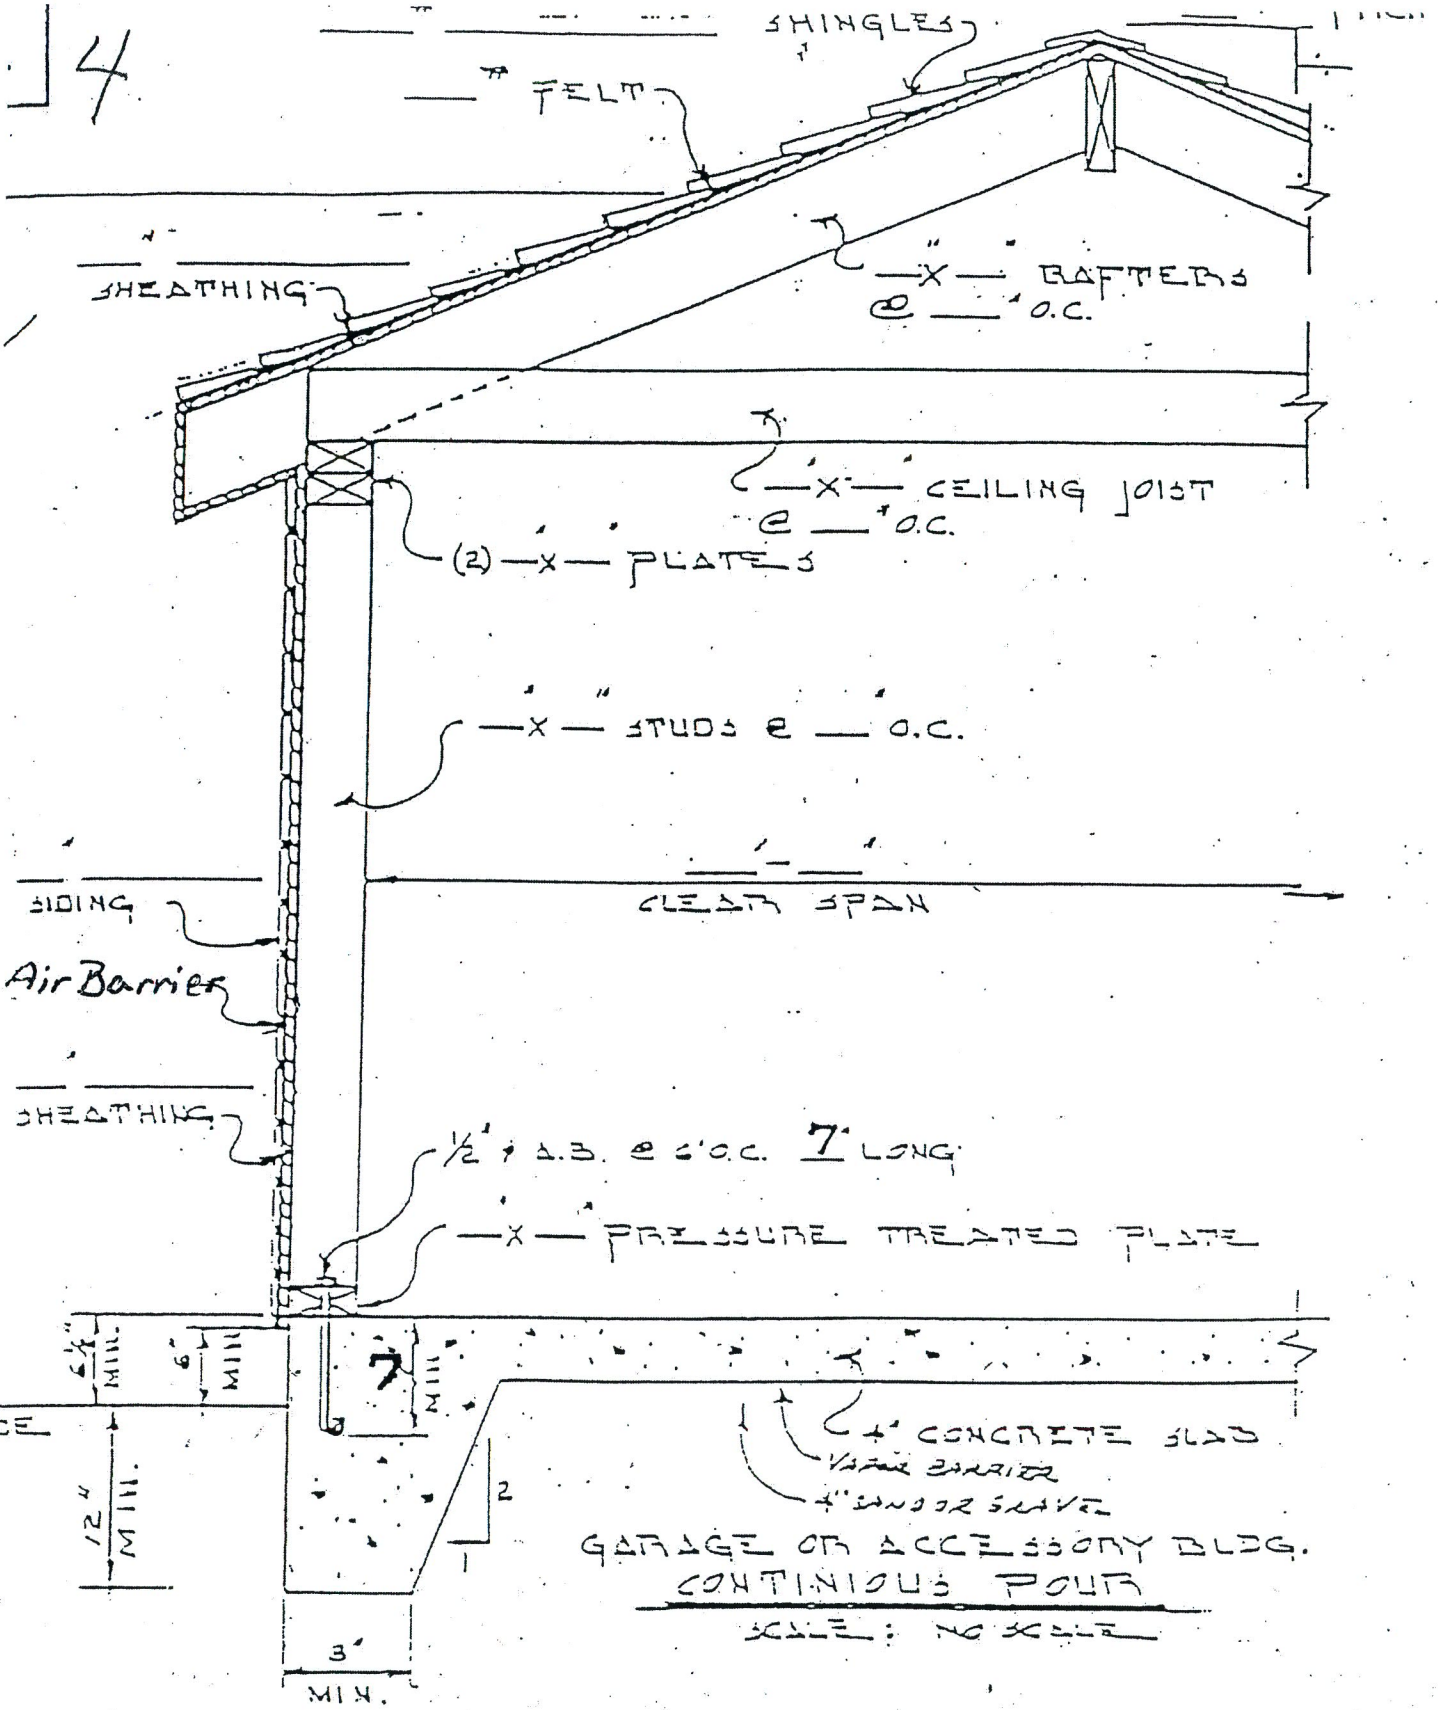 4
SHINGLES
" FELT
SHEATHING
—"x—" RAFTERS
@ —" O.C.
—"x—" CEILING JOIST
@ —" O.C.
(2) —"x—" PLATES
—"x—" STUDS @ —" O.C.
—'-—"
CLEAR SPAN
SIDING
Air Barrier
SHEATHING
½" A.B. @ 6'O.C. 7" LONG
—"x—" PRESSURE TREATED PLATE
6½" MIN.
6" MIN
7 MIN
4" CONCRETE SLAB
VAPOR BARRIER
4" SAND OR GRAVEL
12" MIN.
2
1
GARAGE OR ACCESSORY BLDG.
CONTINIOUS POUR
SCALE: NO SCALE
MIN.